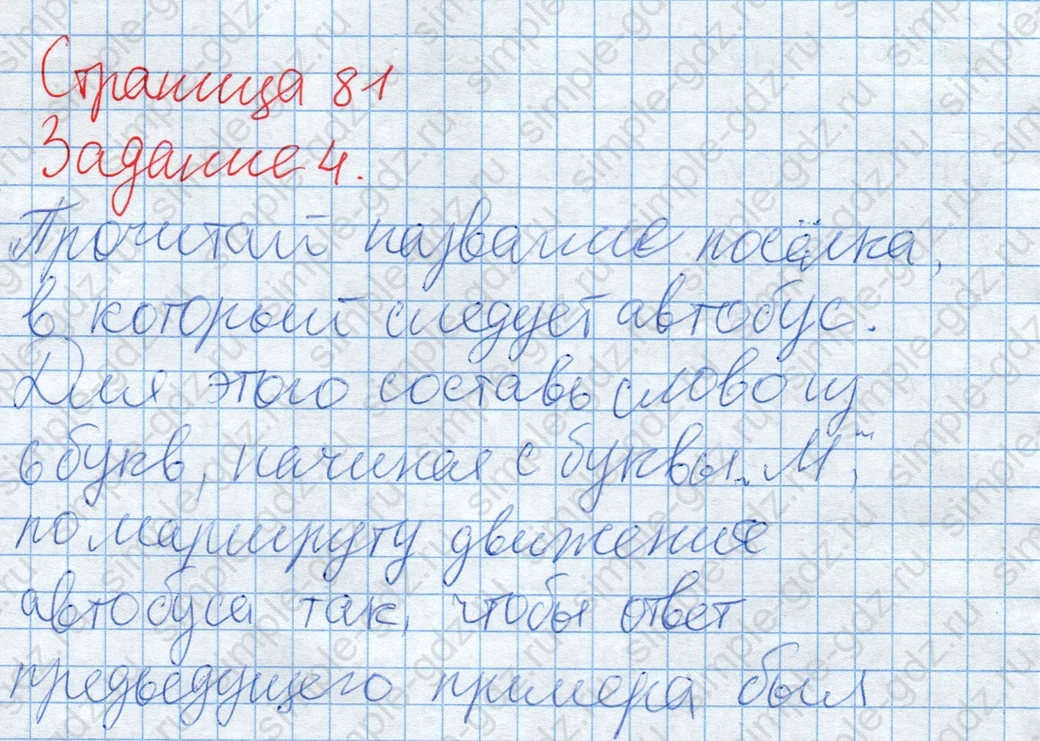 Страница 81
Задание 4.
Прочитай название посёлка,
в который следует автобус.
Для этого составь слово из
6 букв, начиная с буквы „М“,
по маршруту движения
автобуса так, чтобы ответ
предыдущего примера был